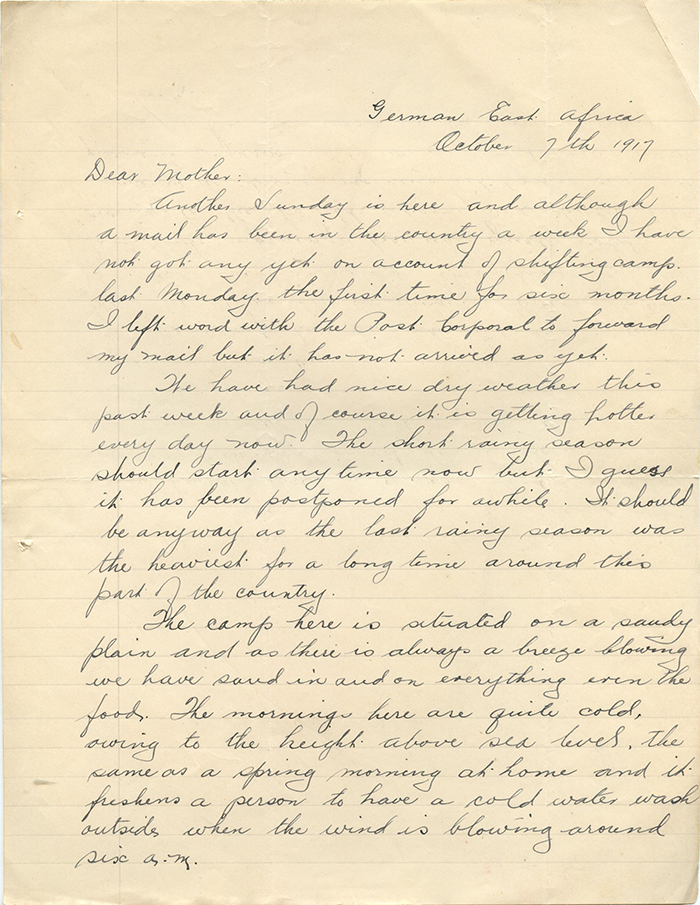 German East Africa
October 7th 1917
Dear Mother:
Another Sunday is here and although
a mail has been in the country a week I have
not got any yet on account of shifting camp
last Monday the first time for six months.
I left word with the Post Corporal to forward
my mail but it has not arrived as yet.
We have had nice dry weather this
past week and of course it is getting hotter
every day now. The short rainy season
should start anytime now but I guess
it has been postponed for awhile. It should
be anyway as the last rainy season was
the heaviest for a long time around this
part of the country.
The camp here is situated on a sandy
plain and as there is always a breeze blowing
we have sand in and on everything even the
food. The mornings here are quite cold,
owing to the height above sea level, the
same as a spring morning at home and it
freshens a person to have a cold water wash
outside when the wind is blowing around
six a.m.